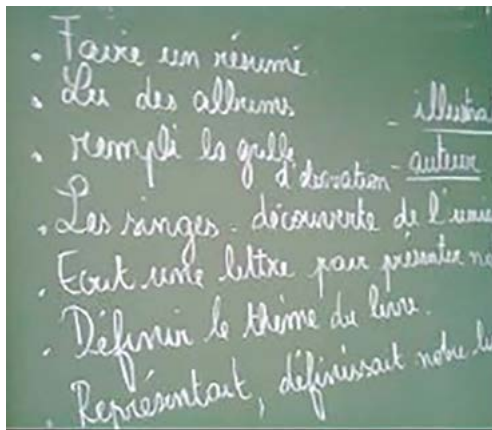 . Faire un résumé
. Lu des albums
- illustra
. rempli la grille
d'observation - auteur
. Les singes - découverte de l'
. Ecrit une lettre pour présenter no
. Définir le thème du livre.
. Représentait, définissait notre li